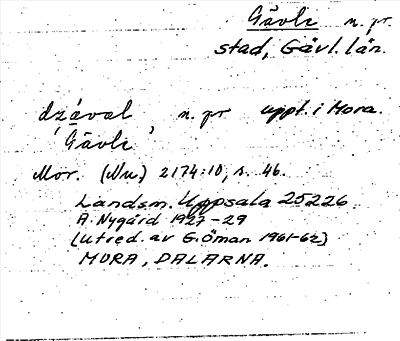 Gävle n. pr.
stad, Gävl. län.
dzäval n. pr uppt. i Mora.
'Gävle'
Mor. (Nu.) 2174:10, s. 46.
Landsm. Uppsala 25226
A. Nygård 1927-29
(utred. av G. Öman 1961-62)
MORA, DALARNA.